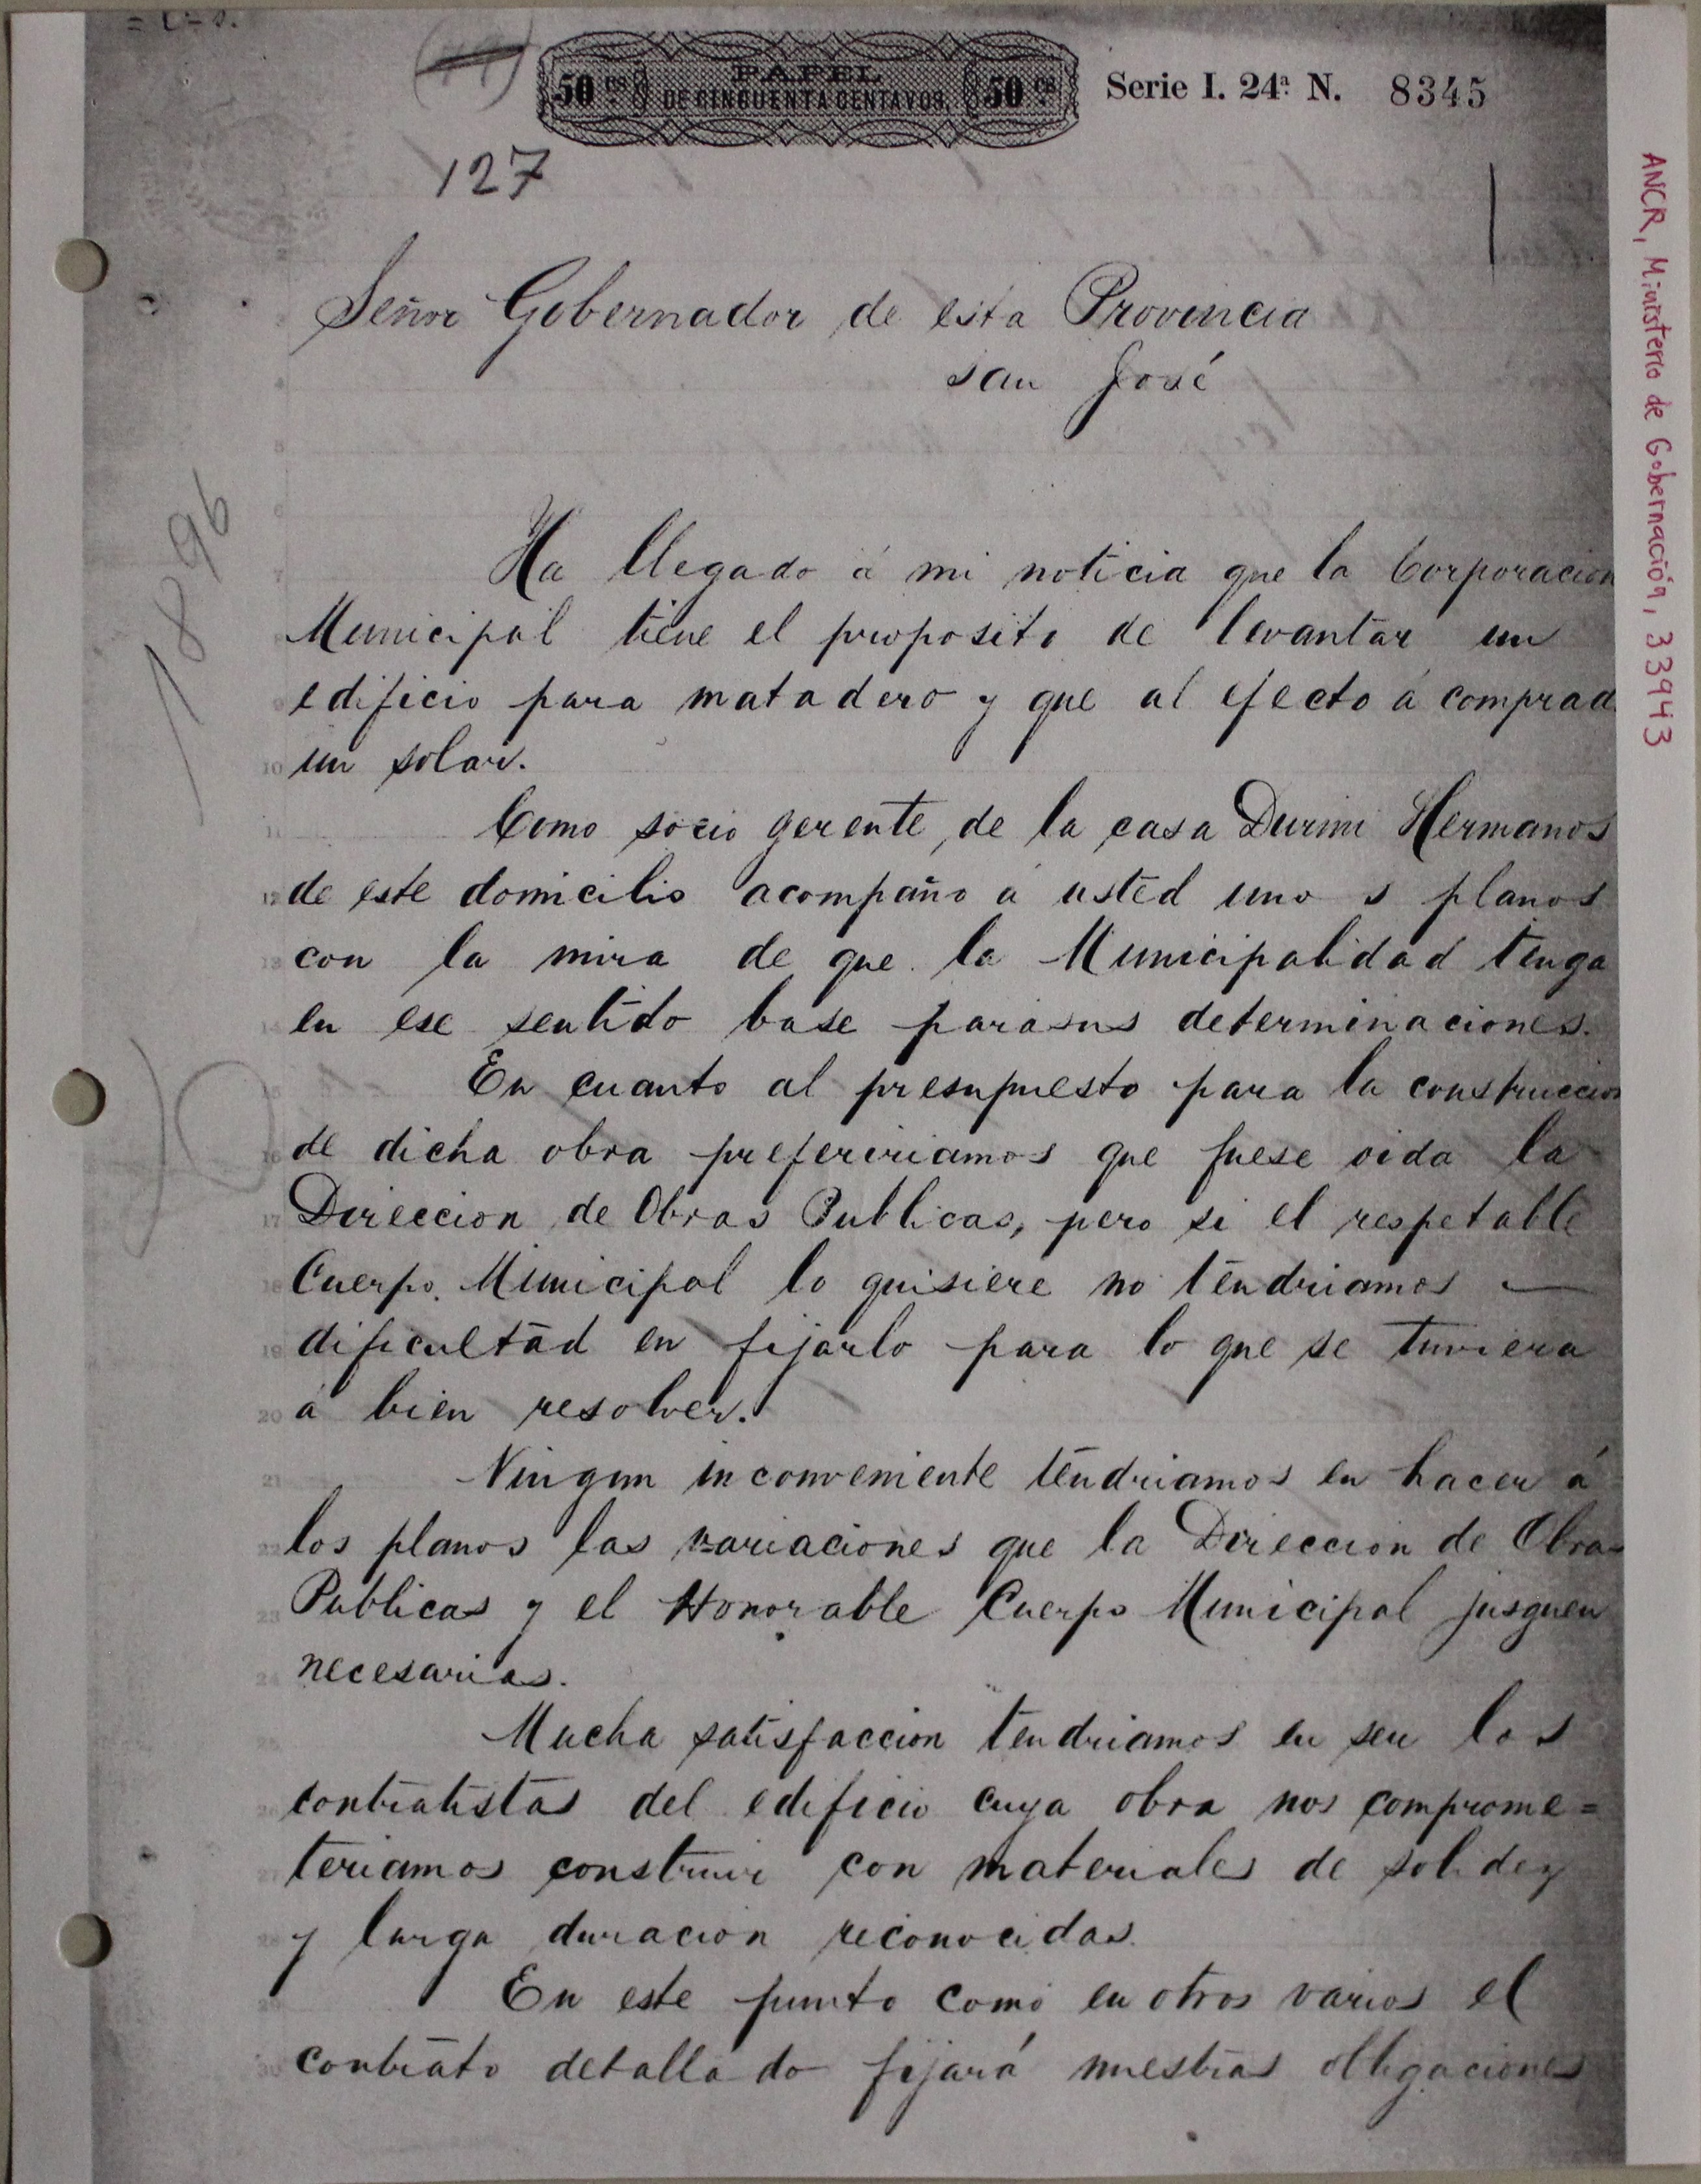 (19)
50 cs PAPEL DE CINCUENTA CENTAVOS. 50 cs
Serie I. 24ª N. 8345
127
Señor Gobernador de esta Provincia
San José
1896
Ha llegado á mi noticia que la Corporacion
Municipal tiene el proposito de levantar un
edificio para matadero y que al efecto á comprad
un solar.
Como socio gerente, de la casa Durini Hermanos
de este domicilio acompaño á usted uno s planos
con la mira de que la Municipalidad tenga
en ese sentido base para sus determinaciones.
En cuanto al presupuesto para la construccion
de dicha obra prefeririamos que fuese oida la
Direccion de Obras Publicas, pero si el respetable
Cuerpo Municipal lo quisiere no tendriamos —
dificultad en fijarlo para lo que se tuviera
á bien resolver.
Ningun inconveniente tendriamos en hacer á
los planos las variaciones que la Direccion de Obras
Publicas y el Honorable Cuerpo Municipal jusguen
necesarias.
Mucha satisfaccion tendriamos en ser los
contratistas del edificio cuya obra nos comprome=
teriamos construir con materiales de solidez
y larga duracion reconocidas.
En este punto como en otros varios el
contrato detallado fijará nuestras obligaciones
ANCR, Ministerio de Gobernación, 33943